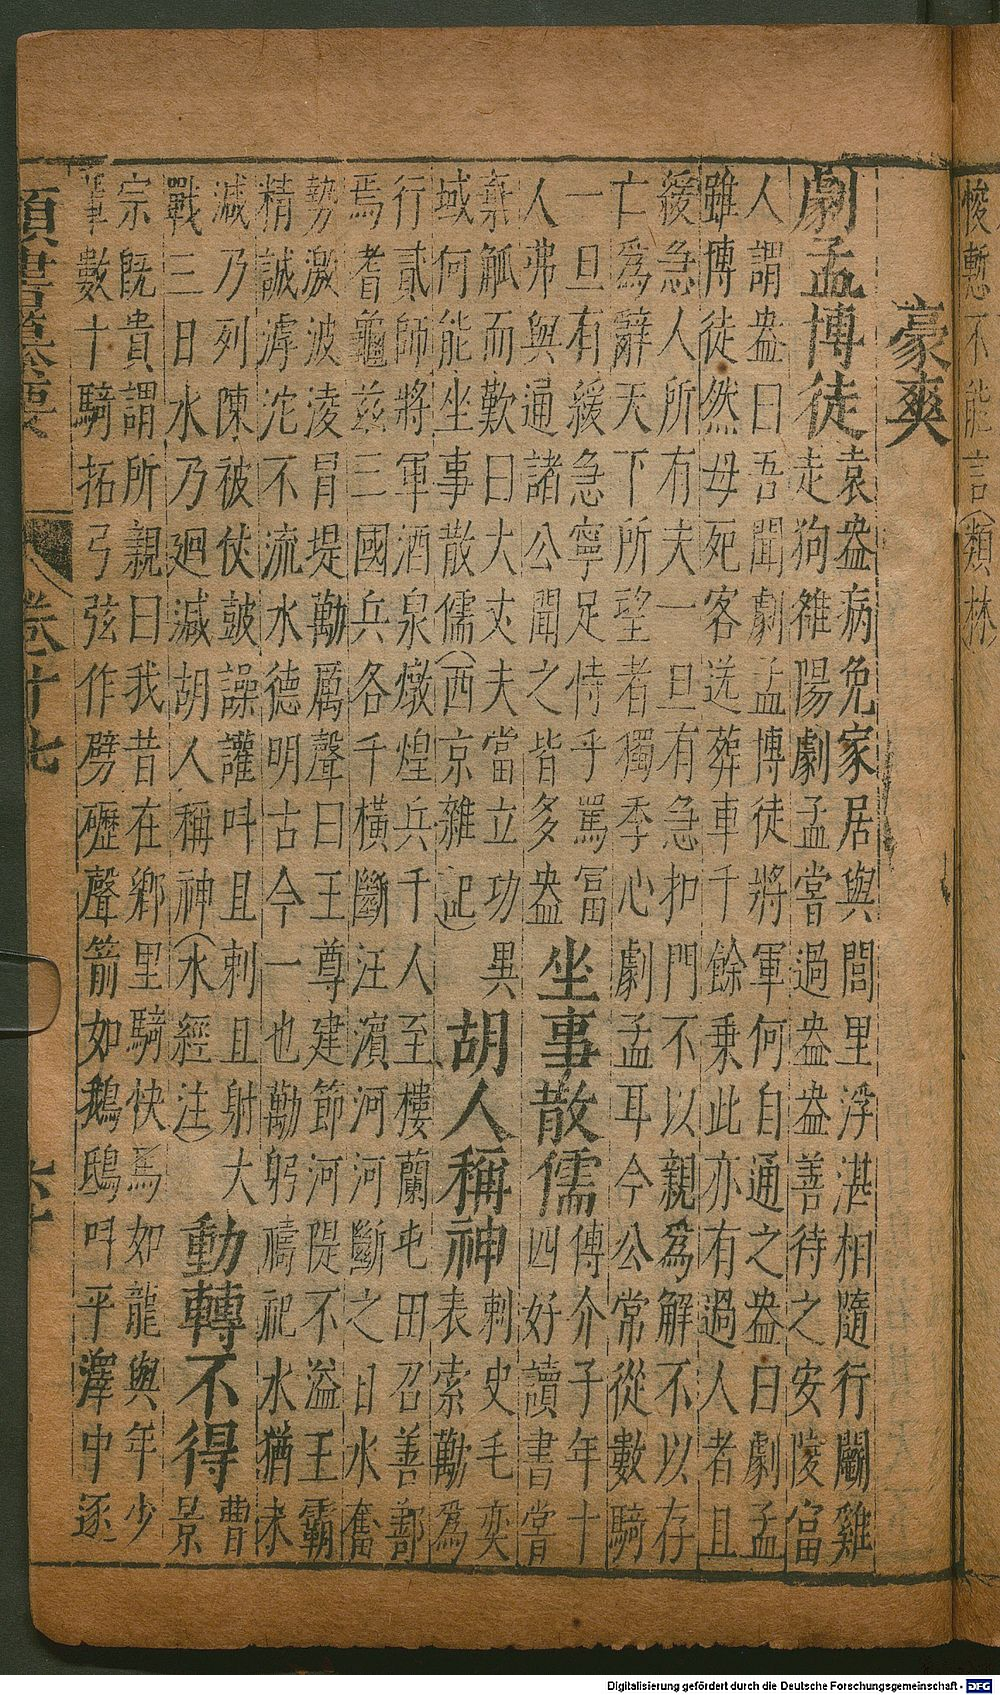 悛慙不能言(類林
豪爽
劇孟博徒
袁盎病免家居與閭里浮湛相隨行鬭雞
走狗雒陽劇孟嘗過盎盎善待之安陵富
人謂盎曰吾聞劇孟博徒將軍何自通之盎曰劇孟
雖博徒然母死客送葬車千餘乗此亦有過人者且
緩急人所有夫一旦有急扣門不以親為解不以存
亡為辭天下所望者獨季心劇孟耳今公常從數騎
一旦有緩急寧足恃乎罵富
人弗與通諸公聞之皆多盎
坐事散儒
傅介子年十
四好讀書嘗
棄觚而歎曰大丈夫當立功異
域何能坐事散儒(西京雜記)
胡人稱神
刺史毛奕
表索勵為
行貳師將軍酒泉燉煌兵千人至樓蘭屯田召善鄯
焉耆龜兹三國兵各千橫斷汪濱河河斷之日水奮
勢激波凌冐堤勵厲聲曰王尊建節河隄不溢王霸
精誠滹沱不流水德明古今一也勵躬禱祀水猶未
減乃列陳被仗鼓譟讙呌且刺且射大
戰三日水乃廻減胡人稱神(水經注)
動轉不得
曹
景
宗既貴謂所親曰我昔在鄉里騎快馬如龍與年少
輩數十騎拓弓弦作劈礰聲箭如鵝鴟呌平澤中逐
類書纂要 卷十七
Digitalisierung gefördert durch die Deutsche Forschungsgemeinschaft - DFG